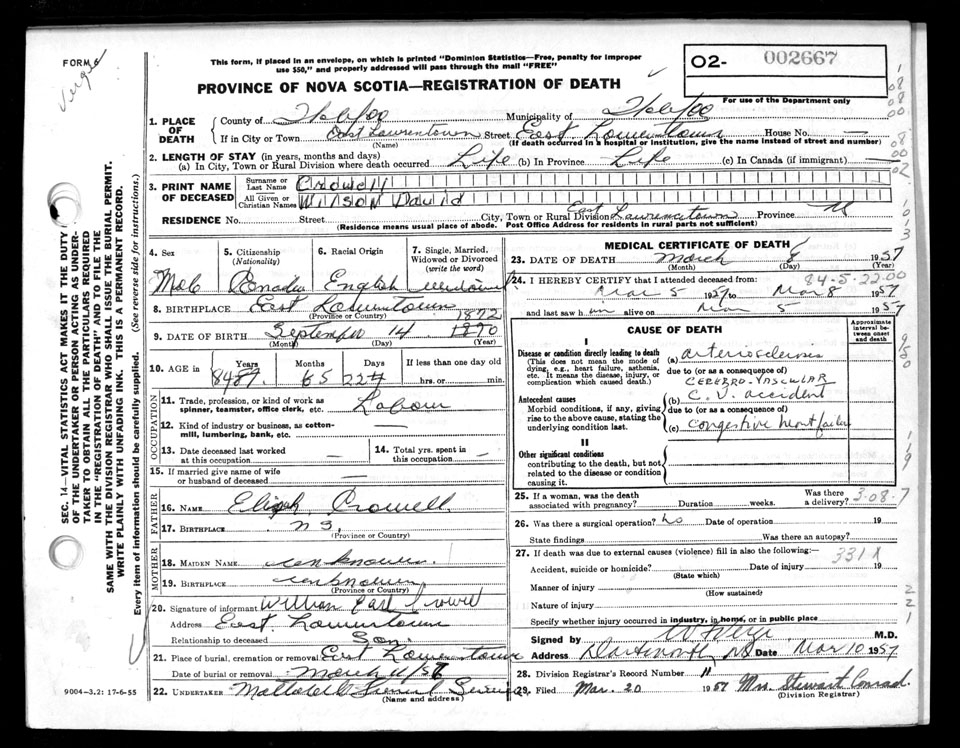 FORM 6
This form, if placed in an envelope, on which is printed "Dominion Statistics—Free, penalty for improper
use $50," and properly addressed will pass through the mail "FREE"
O2- 002667
For use of the Department only
PROVINCE OF NOVA SCOTIA—REGISTRATION OF DEATH
1. PLACE OF DEATH
County of Municipality of
If in City or Town East Lawrencetown Street East Lawrencetown House No. —
(Name) (If death occurred in a hospital or institution, give the name instead of street and number)
2. LENGTH OF STAY (in years, months and days)
(a) In City, Town or Rural Division where death occurred Life (b) In Province Life (c) In Canada (if immigrant) —
3. PRINT NAME OF DECEASED
Surname or Last Name Crowell
All Given or Christian Names Wilson David
RESIDENCE No. Street City, Town or Rural Division East Lawrencetown Province NS
(Residence means usual place of abode. Post Office Address for residents in rural parts not sufficient)
4. Sex
Male
5. Citizenship
(Nationality)
6. Racial Origin
English
7. Single, Married,
Widowed or Divorced
(write the word)
8. BIRTHPLACE East Lawrencetown
(Province or Country)
9. DATE OF BIRTH September 14 1872 1870
(Month) (Day) (Year)
10. AGE in
Years Months Days If less than one day old
hrs. or min.
OCCUPATION
11. Trade, profession, or kind of work as
spinner, teamster, office clerk, etc. Labour
12. Kind of industry or business, as cotton-
mill, lumbering, bank, etc. —
13. Date deceased last worked
at this occupation —
14. Total yrs. spent in
this occupation —
15. If married give name of wife
or husband of deceased —
FATHER
16. NAME Elijah Crowell
17. BIRTHPLACE N S.
(Province or Country)
MOTHER
18. MAIDEN NAME unknown
19. BIRTHPLACE unknown
(Province or Country)
20. Signature of informant William Earl Crowell
Address East Lawrencetown
Relationship to deceased Son.
21. Place of burial, cremation or removal East Lawrencetown
Date of burial or removal March 11/57
22. UNDERTAKER Funeral Service
(Name and address)
MEDICAL CERTIFICATE OF DEATH
23. DATE OF DEATH March 8 1957
(Month) (Day) (Year)
84-5-2200
24. I HEREBY CERTIFY that I attended deceased from:
Mar 5 1957 to Mar 8 1957
and last saw him alive on Mar 5 1957
CAUSE OF DEATH
Approximate
interval be-
tween onset
and death
I
Disease or condition directly leading to death
(This does not mean the mode of
dying, e.g., heart failure, asthenia,
etc. It means the disease, injury, or
complication which caused death.)
(a) arteriosclerosis
due to (or as a consequence of)
CEREBRO-VASCULAR
Antecedent causes
Morbid conditions, if any, giving
rise to the above cause, stating the
underlying condition last.
(b) C.V. accident
due to (or as a consequence of)
(c) congestive heart failure
II
Other significant conditions
contributing to the death, but not
related to the disease or condition
causing it.
25. If a woman, was the death
associated with pregnancy? Duration weeks. Was there
a delivery?
3-08-7
26. Was there a surgical operation? No Date of operation 19
State findings Was there an autopsy?
27. If death was due to external causes (violence) fill in also the following:
331X
Accident, suicide or homicide? Date of injury 19
(State which)
Manner of injury
(How sustained)
Nature of injury
Specify whether injury occurred in industry, in home, or in public place
Signed by M.D.
Address Dartmouth, NS Date Mar 10 1957
28. Division Registrar's Record Number 11
29. Filed Mar. 20 1957 Mrs. Stewart Conrad.
(Division Registrar)
9004-3.2: 17-6-55
SEC. 14—VITAL STATISTICS ACT MAKES IT THE DUTY
OF THE UNDERTAKER OR PERSON ACTING AS UNDER-
TAKER TO OBTAIN ALL THE PARTICULARS REQUIRED
IN THE "REGISTRATION OF DEATH" AND TO FILE THE
SAME WITH THE DIVISION REGISTRAR WHO SHALL ISSUE THE BURIAL PERMIT.
WRITE PLAINLY WITH UNFADING INK. THIS IS A PERMANENT RECORD.
Every item of information should be carefully supplied. (See reverse side for instructions.)